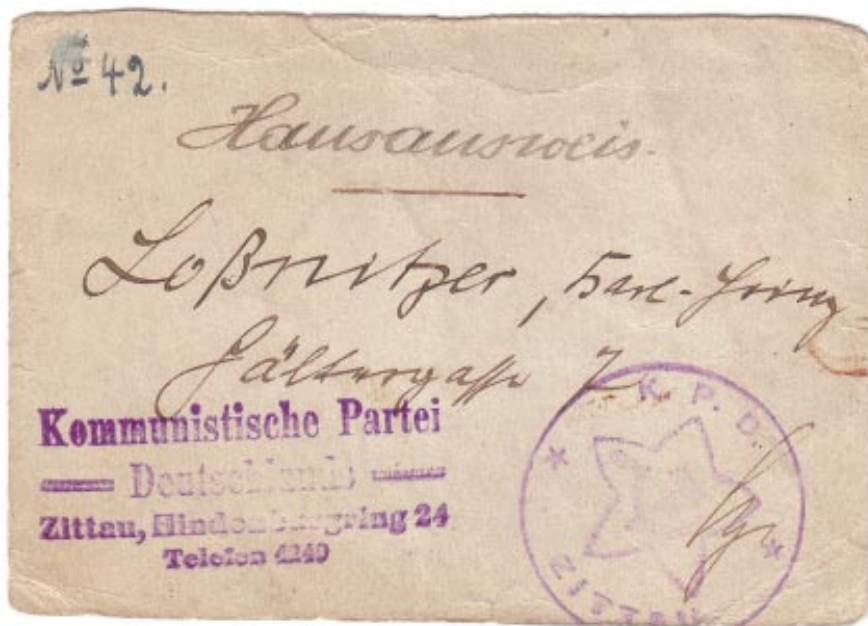 No 42.
Hausausweis.
Loßnitzer, Karl-Heinz
Kommunistische Partei
Deutschlands
Zittau, Hindenburgring 24
Telefon 4240
K. P. D.
ZITTAU